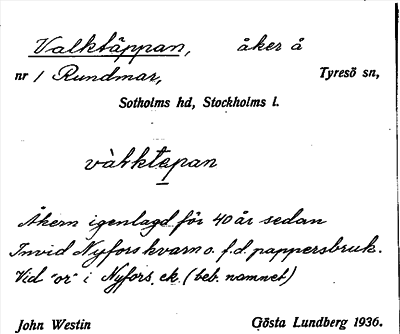 Valktäppan, åker å
nr 1 Rundmar, Tyresö sn,
Sotholms hd, Stockholms l.
vàlktepan
Åkern igenlagd för 40 år sedan
Invid Nyfors kvarn o. f.d. pappersbruk.
Vid "or" i Nyfors ek. (beb. namnet)
John Westin Gösta Lundberg 1936.